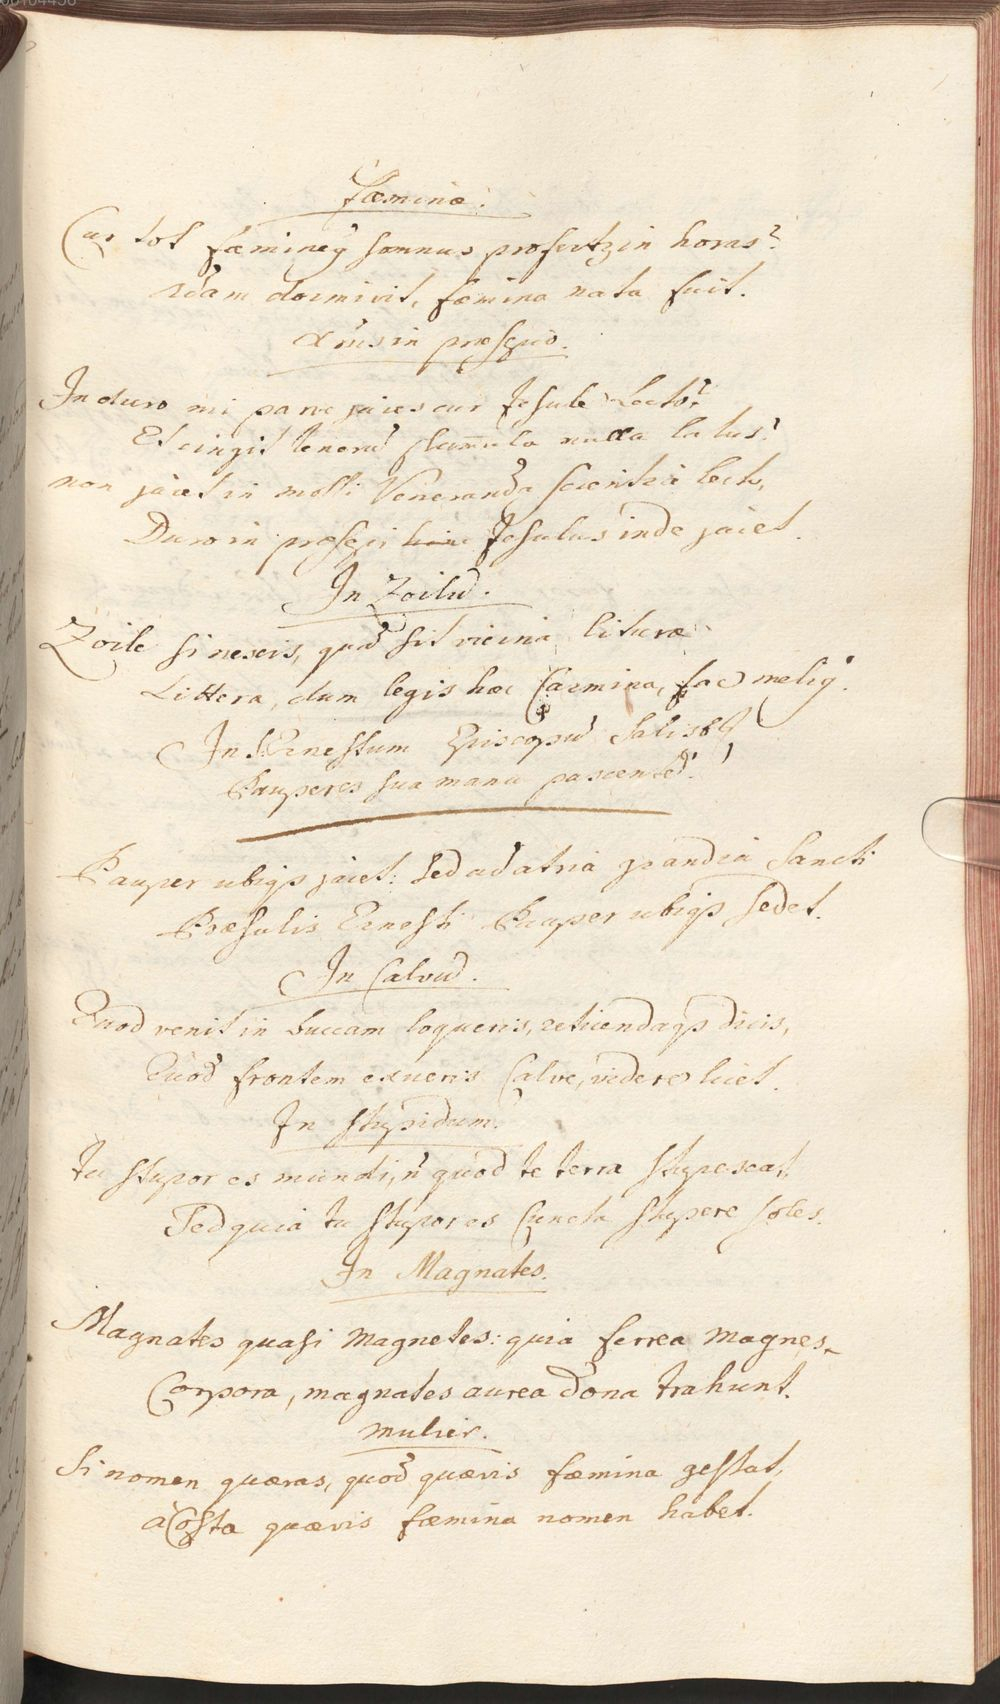 fæminæ.
Cur tot fæmineq somnus profertzin horas?
Adam dormivit, fæmina nata fuit.
Xrus in præsepio.
In duro mi parve jaces cur Jesule Lecto?
Et cingit tenerū plumula nulla latus?
non jacet in molli Veneranda scientia lecto,
Duro in præsepi Jesulus inde jacet.
In Zoilū.
Zoile si nescis, quod sit vicina lituræ
Littera, dum legis hæc Carmina, fac meliq.
In Ernestum Episcopū Salisb
Pauperes sua manu pascentē.
Pauper ubiqs jacet: sed ad atria grandia Sancti
Præsulis Ernesti Pauper ubiqs sedet.
In Calvū.
Quod venit in buccam loqueris, reticendaqs dicis,
Quod frontem exueris Calve, videre licet.
In stupidum.
Tu stupor es mundi, n̄ quod te terra stupescat,
Sed quia tu stupor es Cuncta stupere soles.
In Magnates.
Magnates quasi Magnetes: quia ferrea magnes
Corpora, magnates aurea dona trahunt.
mulier.
Si nomen quæras, quod quævis fæmina gestat,
à Costa quævis fæmina nomen habet.